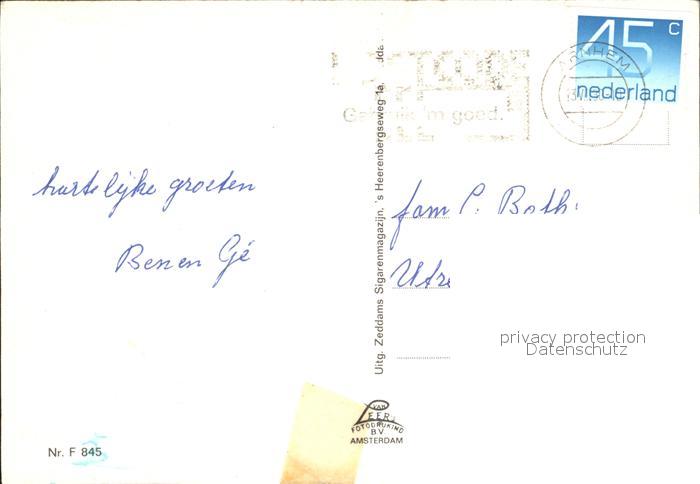 45 c
nederland
ARNHEM
Gebruik 'm goed.
hartelijke groeten
Ben en Gé
fam P. Both.
Utre
privacy protection
Datenschutz
Uitg. Zeddams Sigarenmagazijn, 's Heerenbergseweg 1a,
VAN
LEER
FOTODRUKIND
B.V
AMSTERDAM
Nr. F 845